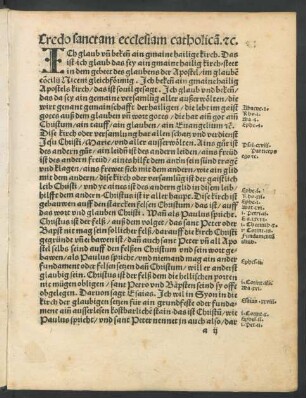 Credo sanctam ecclesiam catholicā. ꝛc.
ICh glaub vñ bekeñ ain gmaine hailige kirch. Das
ist ich glaub das sey ain gmaine hailig kirch stet
in dem gebett des glaubens der Apostel/ im glaubē
cōcilij Niceni gleichförmig. Ich bekeñ ain gmaine hailig
Apostels kirch/ das ist souil gesagt. Ich glaub vnd bekeñ/
das da sey ain gemaine versamlung aller außerwölten/ die
wirt genant gmainschafft der hailigen/ die lebt im gaist
gotes auß dem glauben vñ wort gotes/ die hat ain got ain
Christum/ ain tauff/ ain glauben/ ain Euangelium ꝛc.
Dise kirch oder versamlung hat allen schatz vnd verdienst
Jesu Christi/ Marie/ vnd aller außerwölten. Ains gůtig
des andern gůt/ ains leiden ist des andern leiden/ ains freüd
ist des andern freüd/ ains hilfft dem andern sein sünd tragē
vnd klagen/ ains tröst das ander/ ains hat mit leiden ain glid
mit dem andern/ dise kirch oder versamlung ist der gaistlich
leib Christi/ vnd ye aines ist des andern glid in disem leib/
hilfft dem andern Christus ist ir aller haupt. Dise kirch ist
erbawet auff den felsen Christum/ das ist gebawet/ auff
das wort vnd glauben Christi. Dañ als Paulus spricht.
Christus ist der felß/ auß den volget/ das sant Peter oder
Bapst nit mag sein söllicher felß/ darauff die kirch Christi
gegründt vñ erbawen ist/ dañ sanct Peter vñ all Apo
stel selbs seind auff den felsen Christum vnd sein wort ge
bawen/ als Paulus spricht vnd niemand mag ain ander
fundament oder felsen legen dañ Christum/ will er anderst
glaubig sein. Christus ist der felß dem die hellischen porten
nit mügen obligen/ sant Petro vnd Bäpsten seind sy offt
obgelegen. Daruon sagt Esaias. Ich wil in Syon in die
kirch der glaubigen setzen für ain grundfest vnd fundamēt
ainen außerleßen kostbarlichē stain/ das ist Christū/ wie
Paulus spricht/ vnd sant Peter nennet in auch also/ dar
a ij